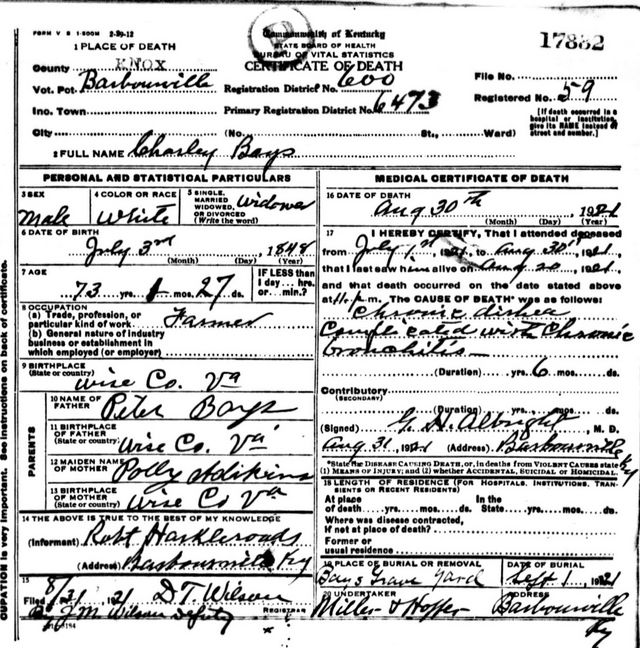 FORM V S 1-500M 2-29-12
Commonwealth of Kentucky
STATE BOARD OF HEALTH
BUREAU OF VITAL STATISTICS
CERTIFICATE OF DEATH
17882
1 PLACE OF DEATH
County KNOX
Vot. Pct. Barbourville
Inc. Town
City (No. St., Ward)
Registration District No. 600
Primary Registration District No. 6473
File No.
Registered No. 59
[If death occurred in a hospital or institution, give its NAME instead of street and number.]
2 FULL NAME Charley Bays
PERSONAL AND STATISTICAL PARTICULARS
3 SEX Male
4 COLOR OR RACE White
5 SINGLE, MARRIED, WIDOWED, OR DIVORCED (Write the word) Widower
6 DATE OF BIRTH July 3rd 1848
(Month) (Day) (Year)
7 AGE 73 yrs. 1 mos. 27 ds.
IF LESS than 1 day... hrs. or... min.?
8 OCCUPATION
(a) Trade, profession, or particular kind of work Farmer
(b) General nature of industry business or establishment in which employed (or employer)
9 BIRTHPLACE
(State or country) Wise Co. Va
PARENTS
10 NAME OF FATHER Peter Bays
11 BIRTHPLACE OF FATHER
(State or country) Wise Co. Va
12 MAIDEN NAME OF MOTHER Polly Adkins
13 BIRTHPLACE OF MOTHER
(State or country) Wise Co Va
14 THE ABOVE IS TRUE TO THE BEST OF MY KNOWLEDGE
(Informant) Robt
(Address) Barbourville Ky
15
Filed 8/31, 1921 D.T. Wilson
REGISTRAR
By J M Wilson Deputy
MEDICAL CERTIFICATE OF DEATH
16 DATE OF DEATH
Aug 30th, 1921
(Month) (Day) (Year)
17 I HEREBY CERTIFY, That I attended deceased
from July 1st 1921, to Aug 30th 1921
that I last saw him alive on Aug 20 1921
and that death occurred on the date stated above
at 11 p.m. The CAUSE OF DEATH* was as follows:
Chronic
Complicated with Chronic
Bronchitis
(Duration) yrs. 6 mos. ds.
Contributory
(SECONDARY)
(Duration) yrs. mos. ds.
(Signed) G. H. Albright, M. D.
Aug 31, 1921 (Address) Barbourville Ky
*State the DISEASE CAUSING DEATH, or, in deaths from VIOLENT CAUSES state (1) MEANS OF INJURY; and (2) whether ACCIDENTAL, SUICIDAL or HOMICIDAL.
18 LENGTH OF RESIDENCE (FOR HOSPITALS, INSTITUTIONS, TRANSIENTS OR RECENT RESIDENTS)
At place of death yrs. mos. ds. In the State yrs. mos. ds.
Where was disease contracted,
If not at place of death?
Former or
usual residence
19 PLACE OF BURIAL OR REMOVAL
Bays Grave Yard
DATE OF BURIAL
Sept 1, 1921
20 UNDERTAKER
Miller & Hopper
ADDRESS
Barbourville
Ky
CUPATION is very important. See instructions on back of certificate.